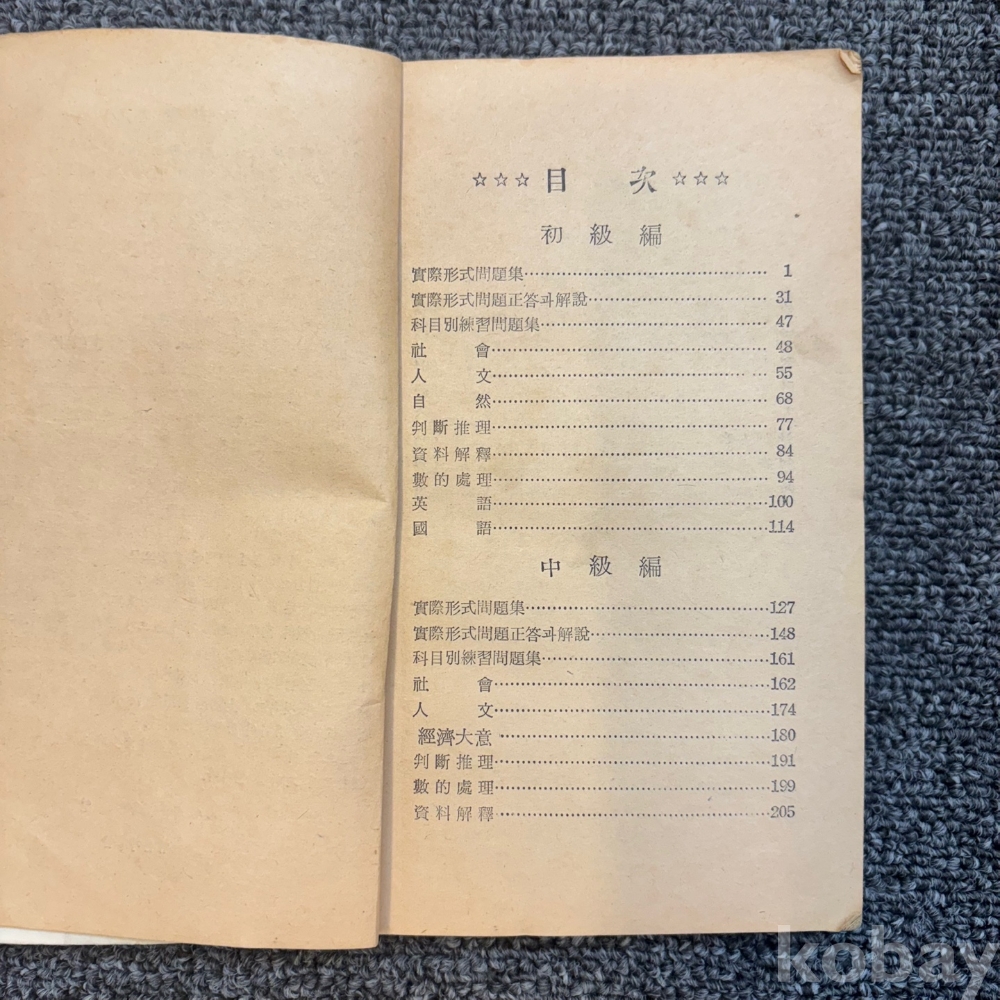 ☆☆☆ 目 次 ☆☆☆
初級編
實際形式問題集 1
實際形式問題正答과解說 31
科目別練習問題集 47
社會 48
人文 55
自然 68
判斷推理 77
資料解釋 84
數的處理 94
英語 100
國語 114
中級編
實際形式問題集 127
實際形式問題正答과解說 148
科目別練習問題集 161
社會 162
人文 174
經濟大意 180
判斷推理 191
數的處理 199
資料解釋 205
kobay